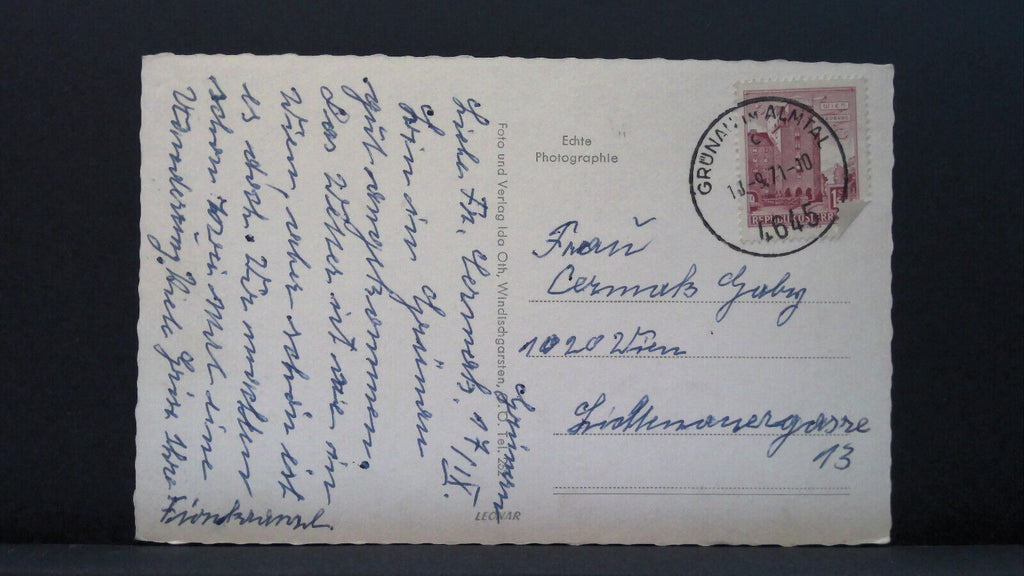 Liebe Fr. Cermak. 17/IX.
Wir sind in Grünau
gut angekommen.
Das Wetter ist wie in
Wien, aber schön ist
es doch. Wir machten
schon zweimal eine
Wanderung. Viele Grüße Ihre
Foto und Verlag Ida Oth, Windischgarsten, O.Ö. Tel.
LEONAR
Echte
Photographie
GRÜNAU IM ALMTAL
c
-9.71-
4645
WIEN
REPUBLIK ÖSTERREICH
Frau
Cermak Gaby
1020 Wien
13